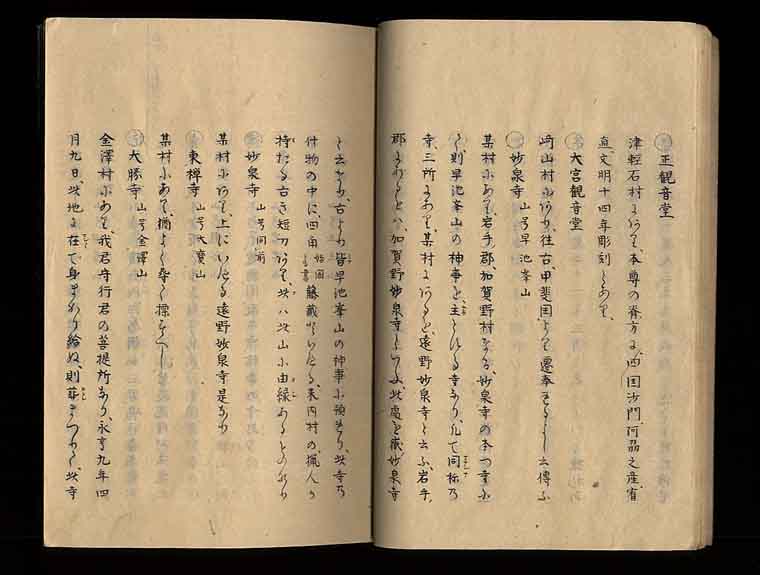 正観音堂
津軽石村にあり、本尊の脊方に、四国沙門、阿刕之産宥
直、文明十四年彫刻とあり、
大宮観音堂
崎山村にあり、往古甲斐国より遷奉
妙泉寺 山号早池峯山
某村にあり、岩手郡加賀野村なる、妙泉寺の本つ寺に
て、則早池峯山の神事を、主といへる寺なり、凡て同称の
寺、三所にあり、某村にあるを、遠野妙泉寺と云ふ、岩手
郡にあるをハ、加賀野妙泉寺といふ、此處を嶽妙泉寺
と云なり、古より皆早池峯山の神事に預れり、此寺乃
什物の中に、四角 藤蔵といへる、来内村の、猟人の
持たる古き短刀あり、此ハ此山に由縁あるものなり
妙泉寺 山号同前
某村にあり、上にいへる遠野妙泉寺是なり
東禅寺 山号大寶山
某村にあり、猶よく尋て標すへし
大勝寺 山号金澤山
金澤村にあり、我君守行君の菩提所なり、永享九年四
月九日、此地に在て身まかり給ぬ、則葬まつりて、此寺